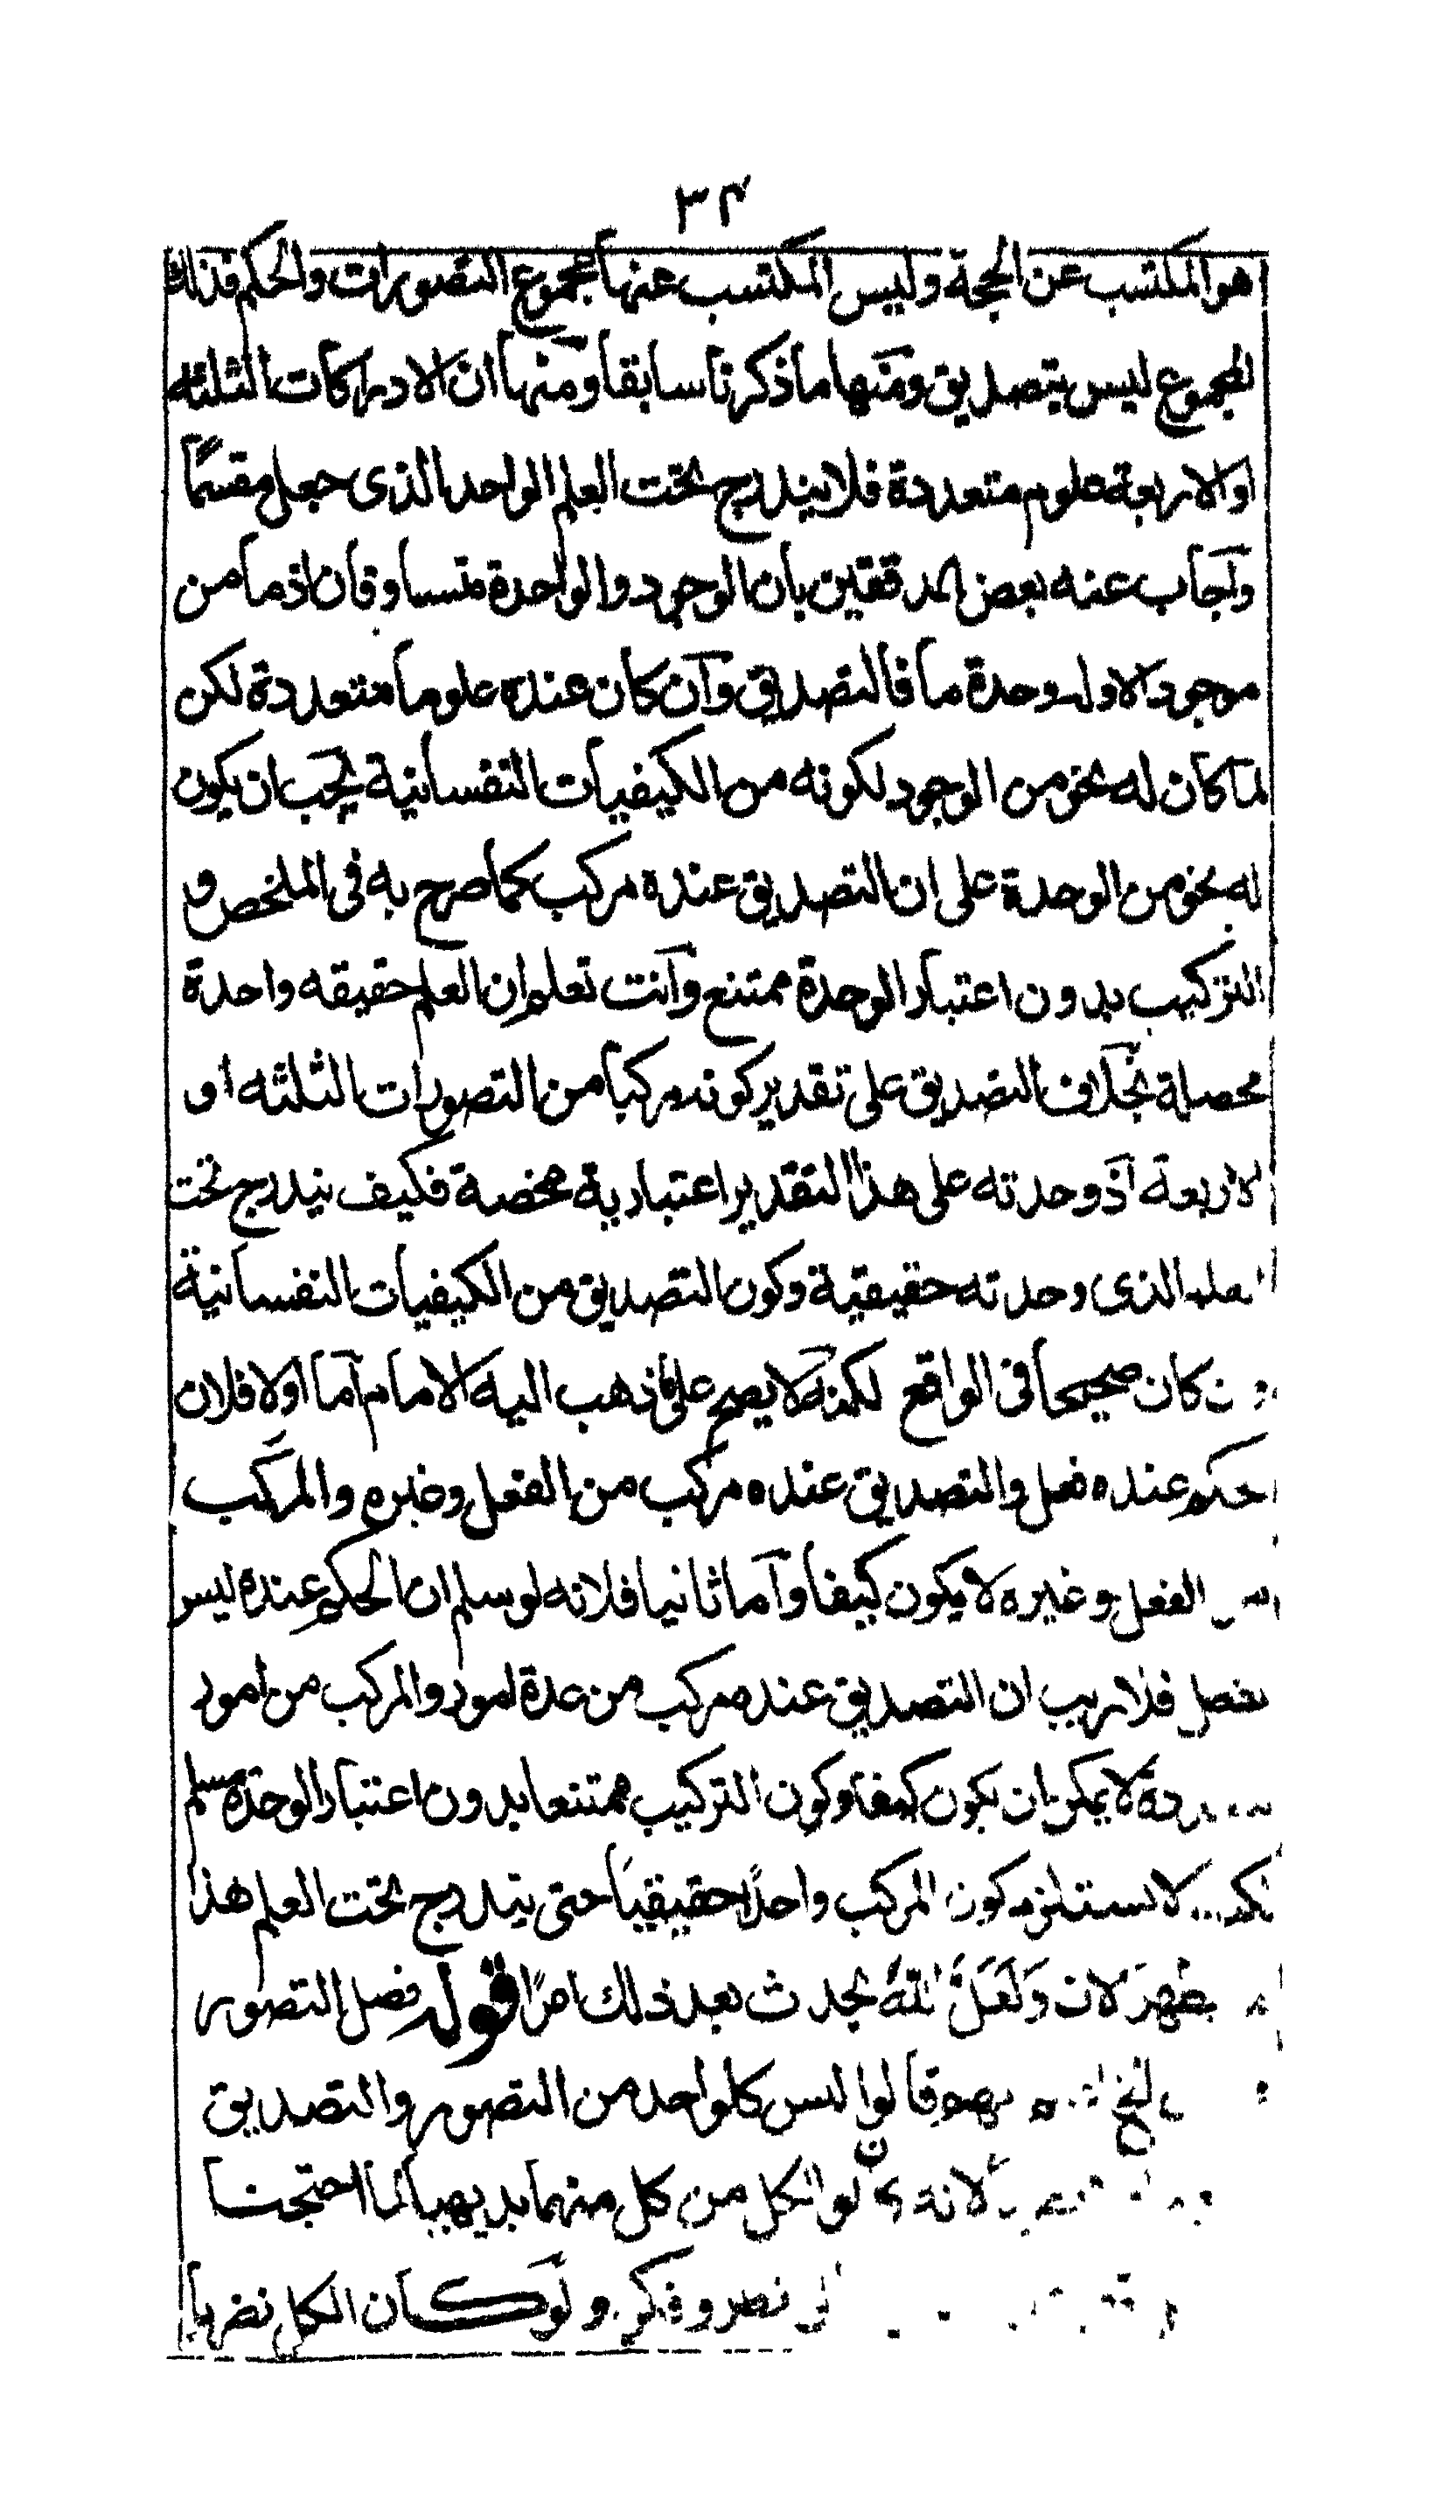 ٣٢
هو المكتسب عن الحجة وليس المكتسب عنها مجموع التصورات والحكم فذلك
المجموع ليس بتصديق ومنها ما ذكرنا سابقا ومنها ان الادراكات الثلثه
او الاربعة علوم متعددة فلا يندرج تحت العلم الواحد الذى جعل مقسمًا
وآجاب عنه بعض المدققين بان الوجود والواحدة متساوقان اذ ما من
موجود الاوله وحدة ما فالتصديق وآن كان عنده علوما متعددة لكن
لمآ كان له نحو من الوجود لكونه من الكيفيات النفسانية يجب ان يكون
له نحو من الوحدة على ان التصديق عنده مركب كما صرح به فى الملخص و
التركيب بدون اعتبار الوحدة ممتنع وآنت تعلم ان العلم حقيقه واحدة
محصلة بخلاف التصديق على تقدير كونه مركبا من التصورات الثلثه او
الاربعة آذ وحدته على هذا التقدير اعتبارية محضة فكيف يندرج تحت
العلم الذى وحدته حقيقية وكون التصديق من الكيفيات النفسانية
و ن كان صحيحا فى الواقع لكنه لا يصح على ما ذهب اليه الامام آما اولا فلان
الحكم عنده فعل والتصديق عنده مركب من الفعل وغيره والمركب
من الفعل وغيره لا يكون كيفا وآما ثانيا فلانه لو سلم ان الحكم عنده ليس
بفعل فلا ريب ان التصديق عنده مركب من عدة امور والمركب من امور
لا يمكن ان يكون كيفا وكون التركيب ممتنعا بدون اعتبار الوحدة مسلم
لا يستلزم كون المركب واحدًا حقيقيًا حتى يندرج تحت العلم هذا
ظهر الان وَلَعَلَّ اللهَ يحدث بعد ذلك امرًا قوله فصل التصور
الخ قالوا ليس كل واحد من التصور والتصديق
لانه لو ان كل من كل منهما بديهيا لما احتجنا
نظر وفكر ولو كان الكل نضريا